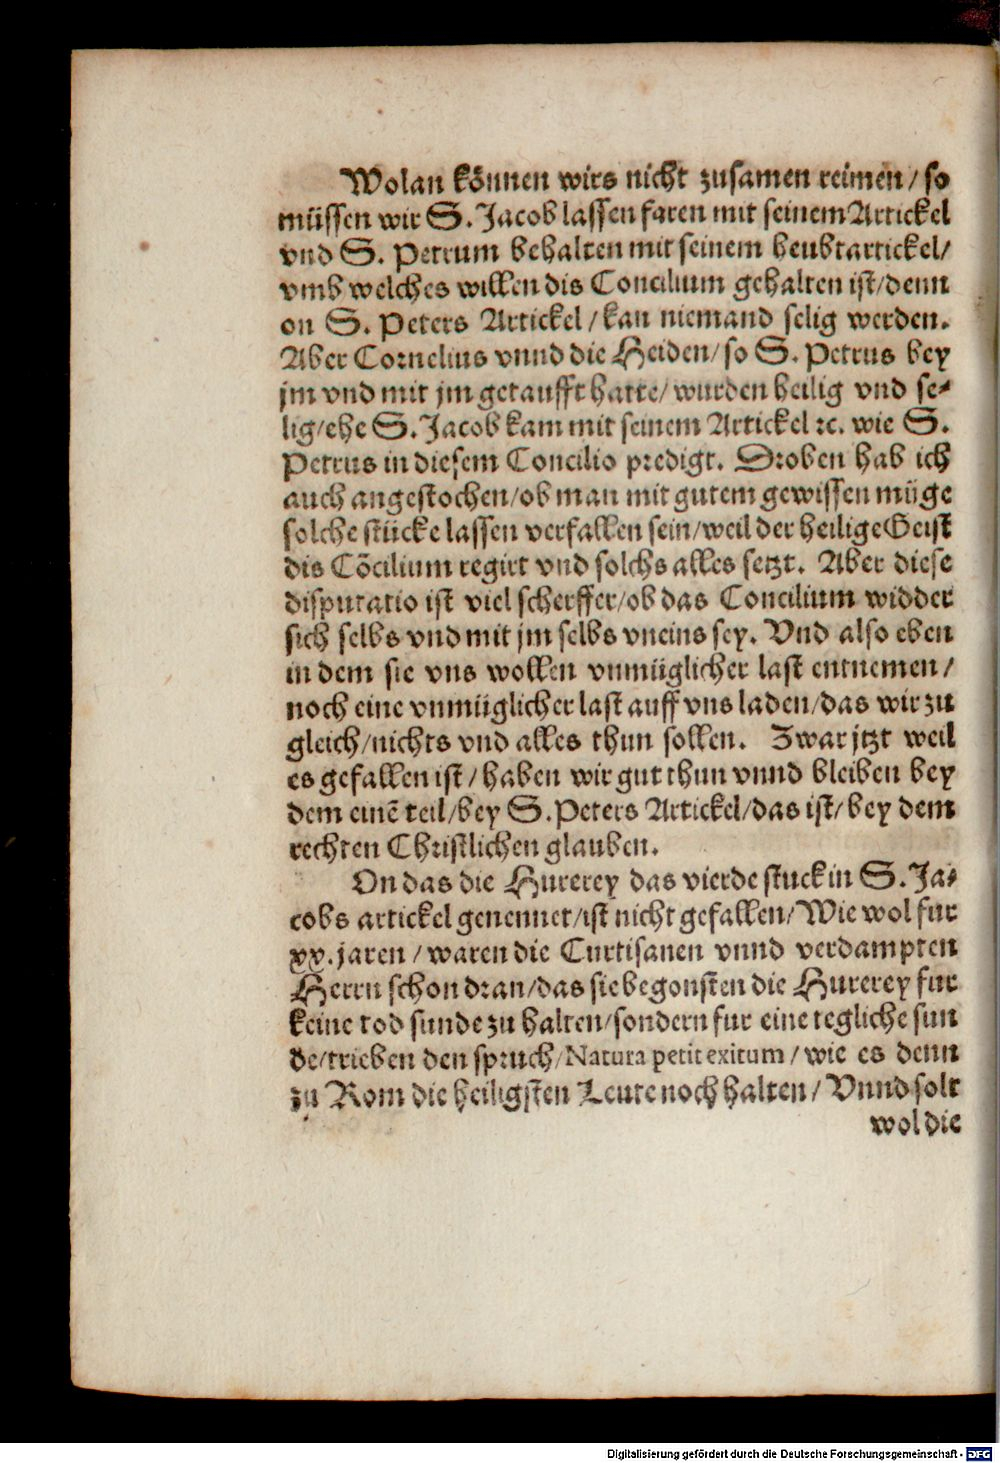 Wolan können wirs nicht zusamen reimen/ so
müssen wir S. Jacob lassen faren mit seinem Artickel
vnd S. Petrum behalten mit seinem heubtartickel/
vmb welches willen dis Concilium gehalten ist/ denn
on S. Peters Artickel/ kan niemand selig werden.
Aber Cornelius vnnd die Heiden/ so S. Petrus bey
jm vnd mit jm getaufft hatte/ wurden heilig vnd se⸗
lig/ ehe S. Jacob kam mit seinem Artickel ꝛc. wie S.
Petrus in diesem Concilio predigt. Droben hab ich
auch angestochen/ ob man mit gutem gewissen müge
solche stücke lassen verfallen sein/ weil der heilige Geist
dis Cõcilium regirt vnd solchs alles setzt. Aber diese
disputatio ist viel scherffer/ ob das Concilium widder
sich selbs vnd mit jm selbs vneins sey. Vnd also eben
in dem sie vns wollen vnmüglicher last entnemen/
noch eine vnmüglicher last auff vns laden/ das wir zu
gleich/ nichts vnd alles thun sollen. Zwar jtzt weil
es gefallen ist/ haben wir gut thun vnnd bleiben bey
dem einẽ teil/ bey S. Peters Artickel/ das ist/ bey dem
rechten Christlichen glauben.
On das die Hurerey das vierde stuck in S. Ja⸗
cobs artickel genennet/ ist nicht gefallen/ Wie wol fur
xx. jaren/ waren die Curtisanen vnnd verdampten
Herrn schon dran/ das sie begonsten die Hurerey fur
keine tod sunde zu halten/ sondern fur eine tegliche sun
de/ trieben den spruch/ Natura petit exitum/ wie es denn
zu Rom die heiligsten Leute noch halten/ Vnnd solt
wol die
Digitalisierung gefördert durch die Deutsche Forschungsgemeinschaft - DFG